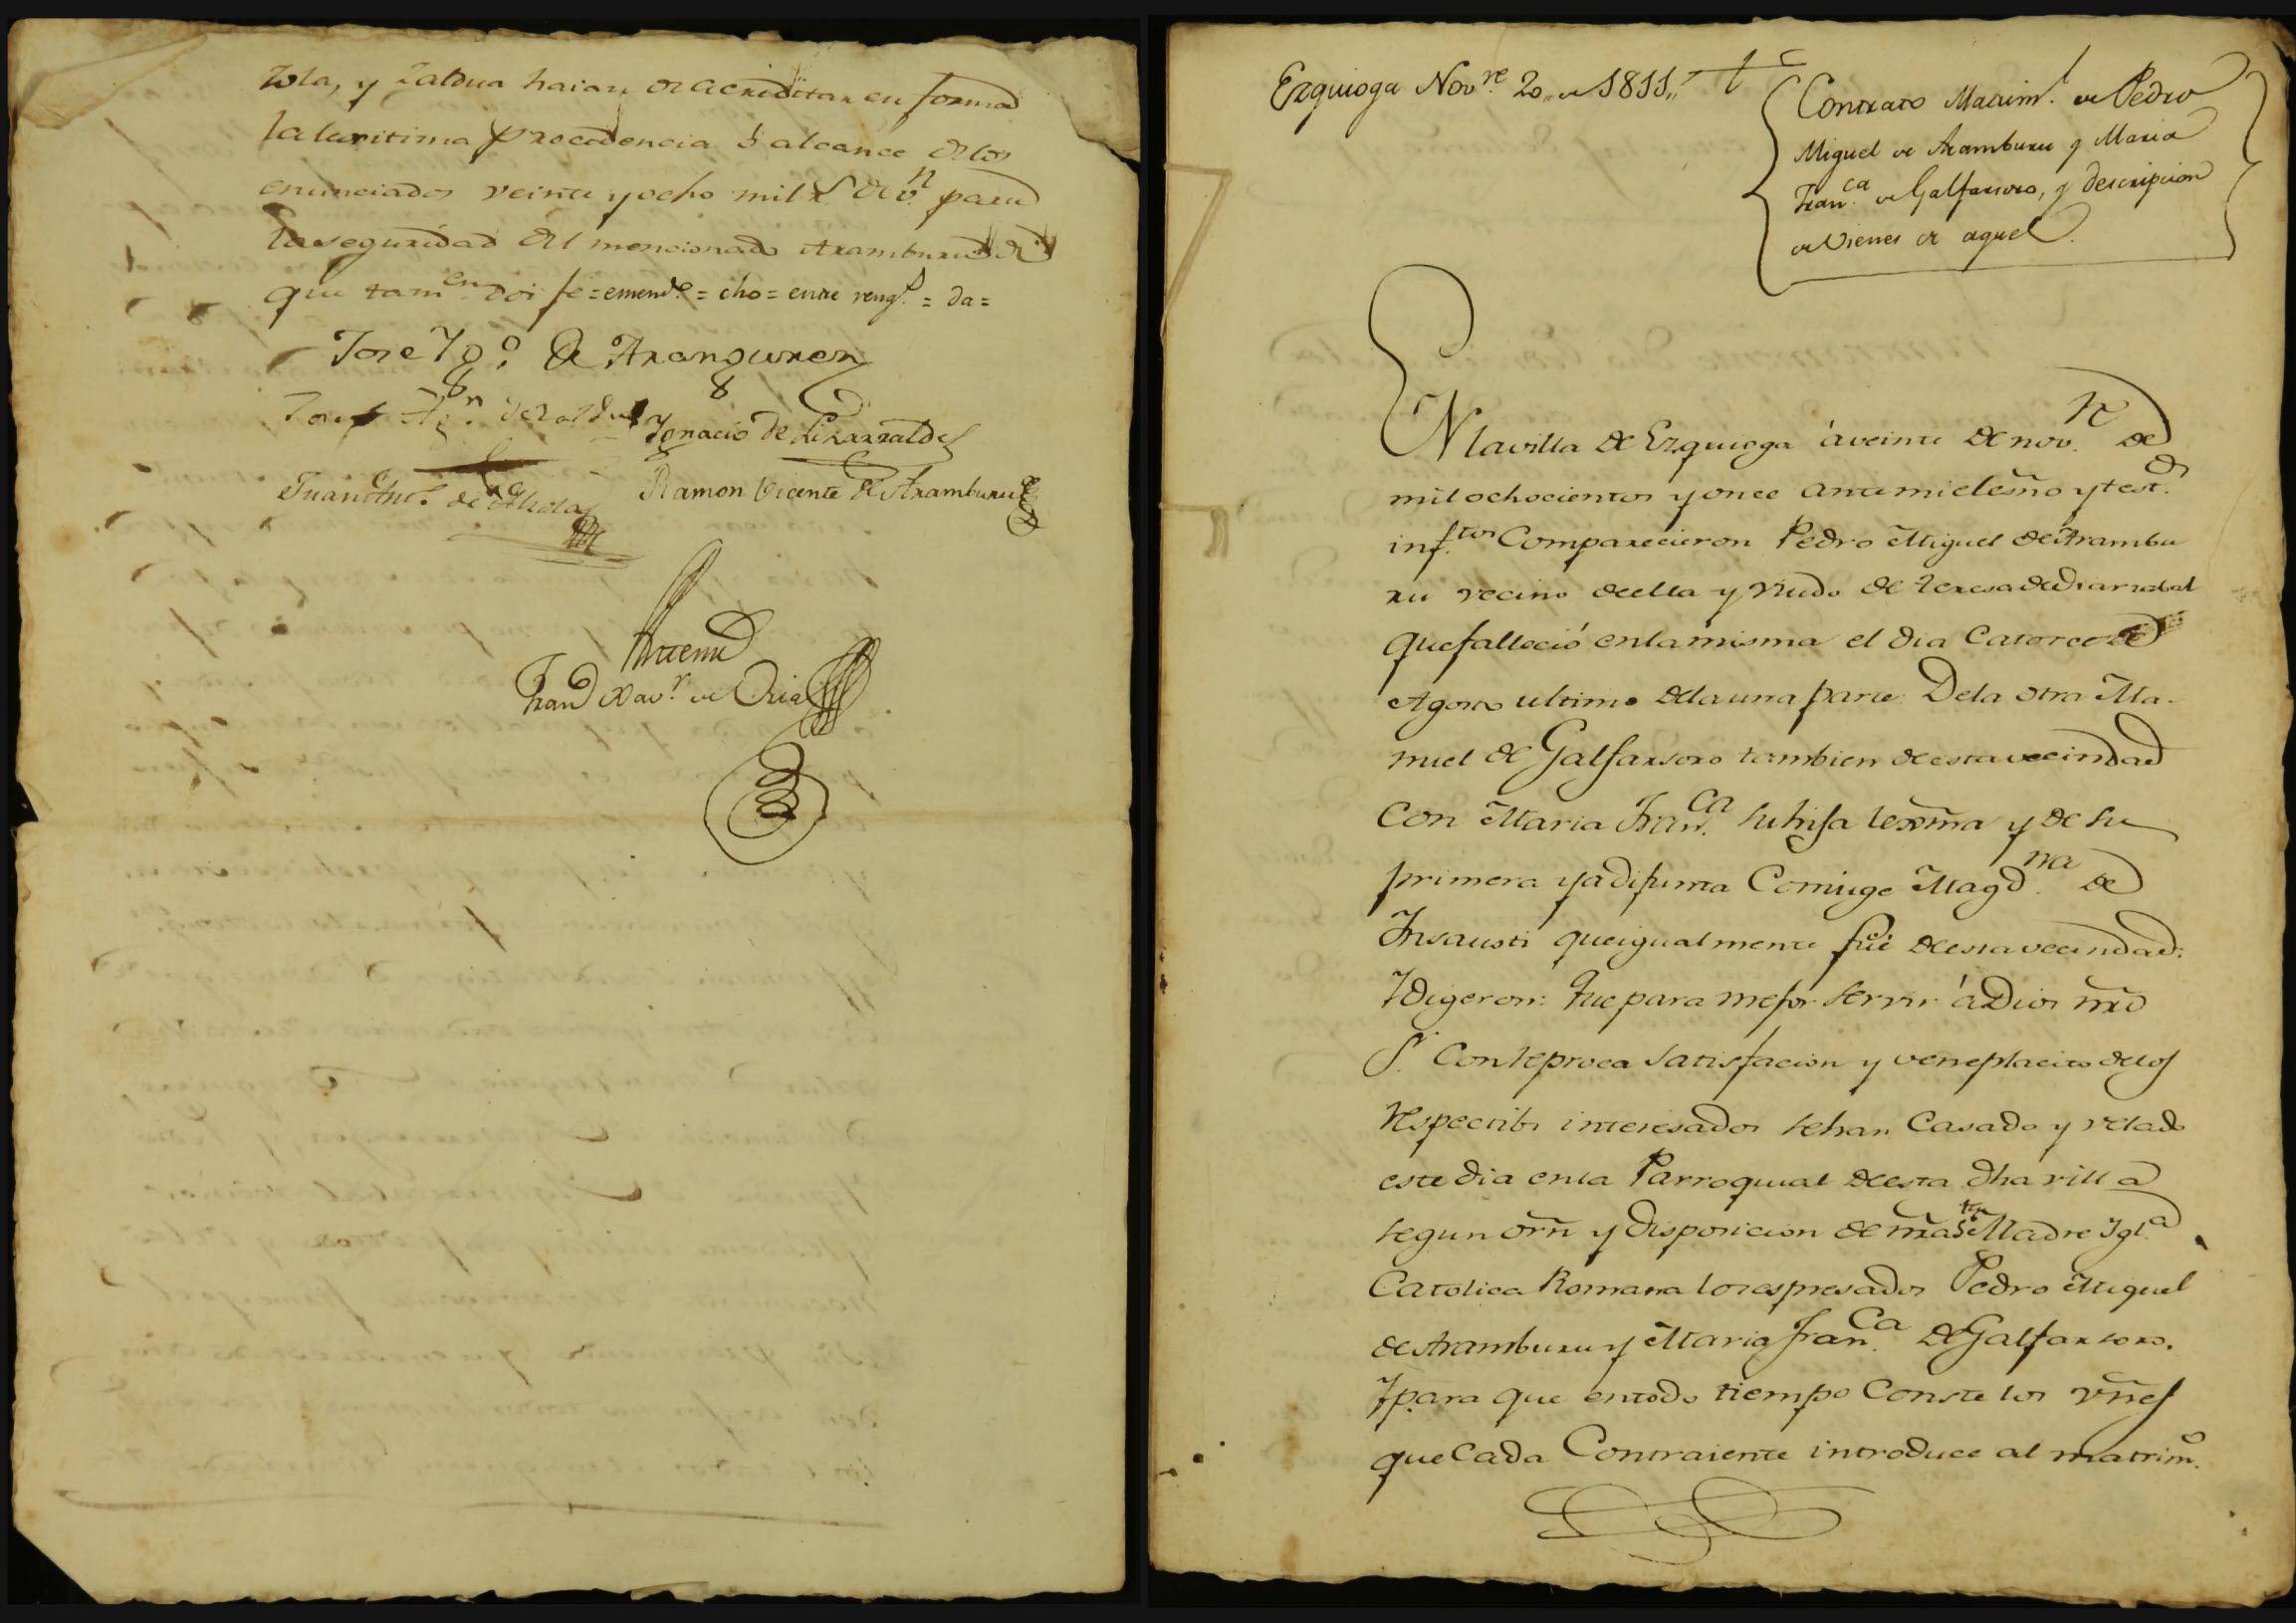 zola, y Zaldua haian de acreditar en forma
la lexitima procedencia ò alcance de los
enunciados veinte y ocho mil r.^s de v.^n para
la seguridad del mencionado Aramburu de
que tam.^en doi fe = emend.^o = cho = entre reng.^s = da =
Jose Ig.^o de Aranguren
Josef Ag.^n de Zaldua
Ignacio de Lizarralde
Juan de Alzola
Ramon Vicente de Aramburu
Ante mi
Fran.^co Xav.^r de Oria
Ezquioga Nov.^re 20,, de 1811,,
Contrato Matrim.^l de Pedro
Miguel de Aramburu y Maria
Fran.^ca de Galfarsoro, y descripcion
de Vienes de aquel.
EN la villa de Ezquioga à veinte de nov.^re de
mil ochocientos y once ante mi el esño y test.^os
inf.^tos Comparecieron Pedro Miguel de Arambu
ru vecino de ella y viudo de Teresa de
que falleció en la misma el dia Catorce de
Agosto ultimo de la una parte. De la otra Ma-
nuel de Galfarsoro tambien de esta vecindad
Con Maria Fran.^ca su hija lexma y de su
primera ya difunta Coniuge Magd.^na de
Insausti que igualmente fué de esta vecindad:
Y digeron: Que para mejor servir à Dios nro
S.^r Con reproca satisfacion y veneplacito de los
respectibos interesados se han Casado y velado
este dia en la Parroquial de esta dha villa
segun orñ y disposicion de nra S.^ta Madre Igl.^a
Catolica Romana los espresados Pedro Miguel
de Aramburu y Maria Fran.^ca de Galfarsoro.
Y para que en todo tiempo Conste los vñes
que Cada Contraiente introduce al matrim.^o